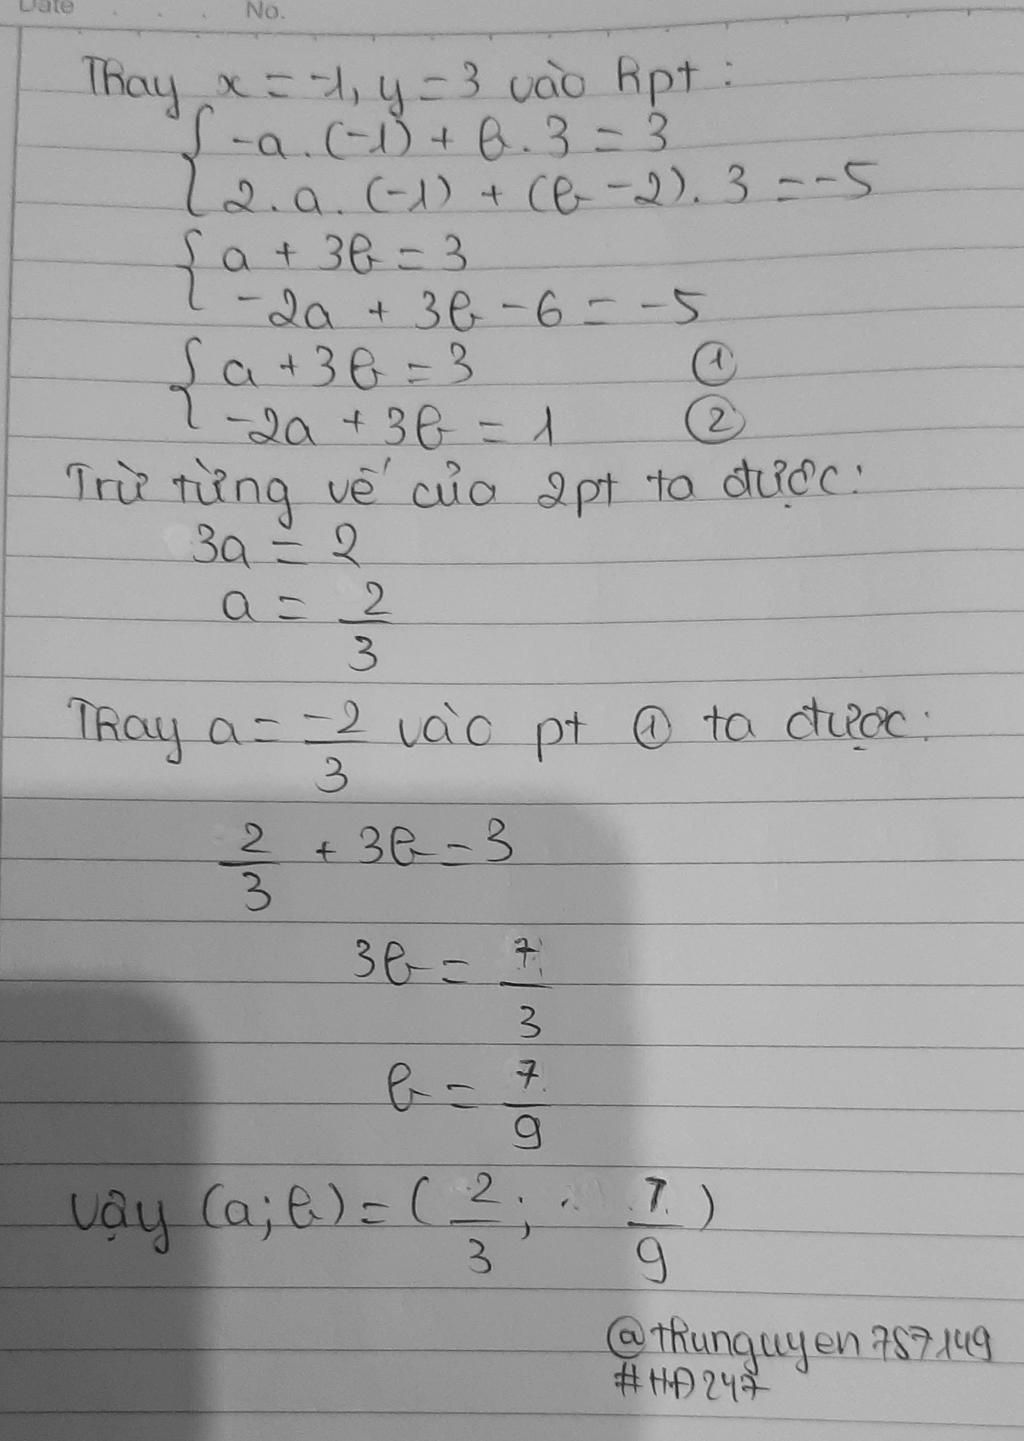 Date No.
Thay x = -1, y = 3 vào hpt :
{ -a. (-1) + b. 3 = 3
2. a. (-1) + (b - 2). 3 = -5
{ a + 3b = 3
-2a + 3b - 6 = -5
{ a + 3b = 3 ①
-2a + 3b = 1 ②
Trừ từng vế của 2pt ta được:
3a = 2
a = 2/3
Thay a = -2/3 vào pt ① ta được:
2/3 + 3b = 3
3b = 7/3
b = 7/9
Vậy (a; b) = (2/3; 7/9)
@thunguyen757149
#HĐ247